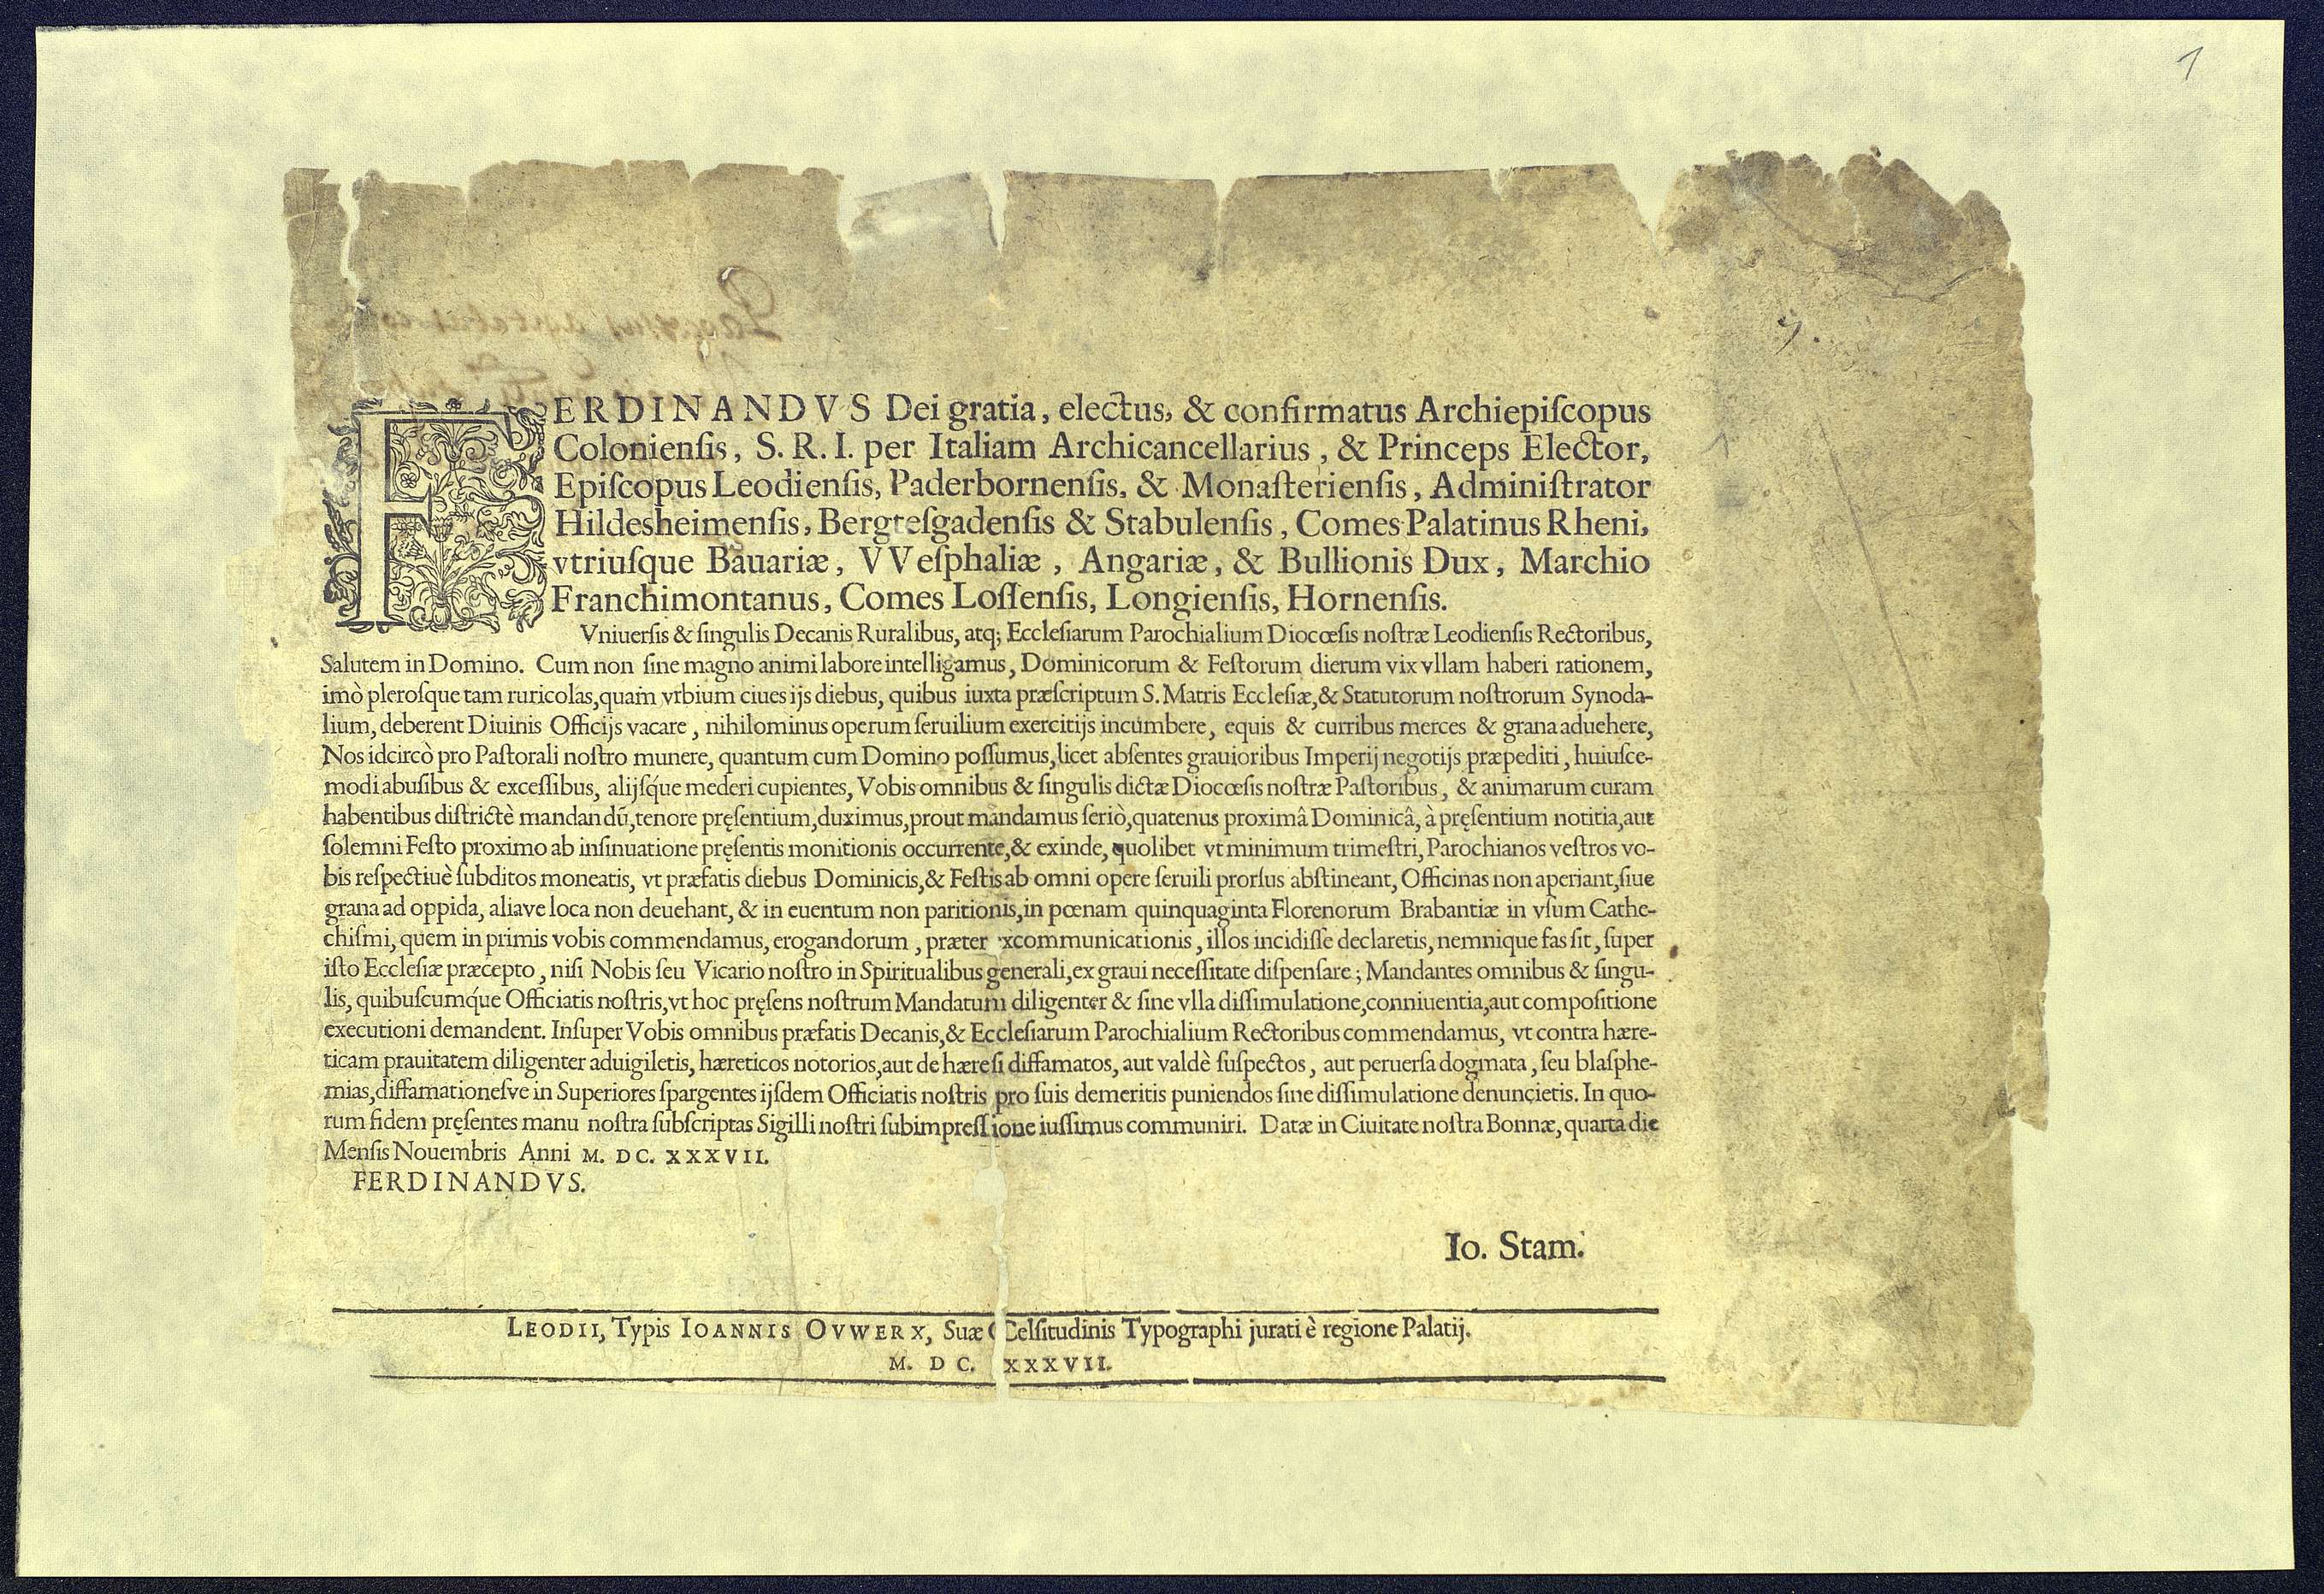 1
FERDINANDVS Dei gratia, electus, & confirmatus Archiepiſcopus
Colonienſis, S. R. I. per Italiam Archicancellarius, & Princeps Elector,
Epiſcopus Leodienſis, Paderbornenſis, & Monaſterienſis, Adminiſtrator
Hildesheimenſis, Bergteſgadenſis & Stabulenſis, Comes Palatinus Rheni,
vtriuſque Bauariæ, VVeſphaliæ, Angariæ, & Bullionis Dux, Marchio
Franchimontanus, Comes Loſſenſis, Longienſis, Hornenſis.
Vniuerſis & ſingulis Decanis Ruralibus, atq; Eccleſiarum Parochialium Diocœſis noſtræ Leodienſis Rectoribus,
Salutem in Domino. Cum non ſine magno animi labore intelligamus, Dominicorum & Feſtorum dierum vix vllam haberi rationem,
imò pleroſque tam ruricolas, quam vrbium ciues ijs diebus, quibus iuxta præſcriptum S. Matris Eccleſiæ, & Statutorum noſtrorum Synoda-
lium, deberent Diuinis Officijs vacare, nihilominus operum ſeruilium exercitijs incumbere, equis & curribus merces & grana aduehere,
Nos idcircò pro Paſtorali noſtro munere, quantum cum Domino poſſumus, licet abſentes grauioribus Imperij negotijs præpediti, huiuſce-
modi abuſibus & exceſſibus, alijſq́ue mederi cupientes, Vobis omnibus & ſingulis dictæ Diocœſis noſtræ Paſtoribus, & animarum curam
habentibus diſtrictè mandandū, tenore pręſentium, duximus, prout mandamus ſeriò, quatenus proximâ Dominicâ, à pręſentium notitia, aut
ſolemni Feſto proximo ab inſinuatione pręſentis monitionis occurrente, & exinde, quolibet vt minimum trimeſtri, Parochianos veſtros vo-
bis reſpectiuè ſubditos moneatis, vt præfatis diebus Dominicis, & Feſtis ab omni opere ſeruili prorſus abſtineant, Officinas non aperiant, ſiue
grana ad oppida, aliave loca non deuehant, & in euentum non paritionis, in pœnam quinquaginta Florenorum Brabantiæ in vſum Cathe-
chiſmi, quem in primis vobis commendamus, erogandorum, præter xcommunicationis, illos incidiſſe declaretis, nemnique fas ſit, ſuper
iſto Eccleſiæ præcepto, niſi Nobis ſeu Vicario noſtro in Spiritualibus generali, ex graui neceſſitate diſpenſare; Mandantes omnibus & ſingu-
lis, quibuſcumq́ue Officiatis noſtris, vt hoc pręſens noſtrum Mandatum diligenter & ſine vlla diſſimulatione, conniuentia, aut compoſitione
executioni demandent. Inſuper Vobis omnibus præfatis Decanis, & Eccleſiarum Parochialium Rectoribus commendamus, vt contra hære-
ticam prauitatem diligenter aduigiletis, hæreticos notorios, aut de hæreſi diffamatos, aut valdè ſuſpectos, aut peruerſa dogmata, ſeu blaſphe-
mias, diffamationeſve in Superiores ſpargentes ijſdem Officiatis noſtris pro ſuis demeritis puniendos ſine diſſimulatione denuncietis. In quo-
rum fidem pręſentes manu noſtra ſubſcriptas Sigilli noſtri ſubimpreſſione iuſſimus communiri. Datæ in Ciuitate noſtra Bonnæ, quarta die
Menſis Nouembris Anni M. DC. XXXVII.
FERDINANDVS.
Io. Stam.
LEODII, Typis IOANNIS OVWERX, Suæ Celſitudinis Typographi jurati è regione Palatij.
M. DC. XXXVII.